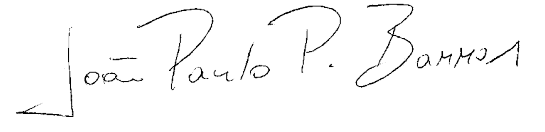 João Paulo P. Barros